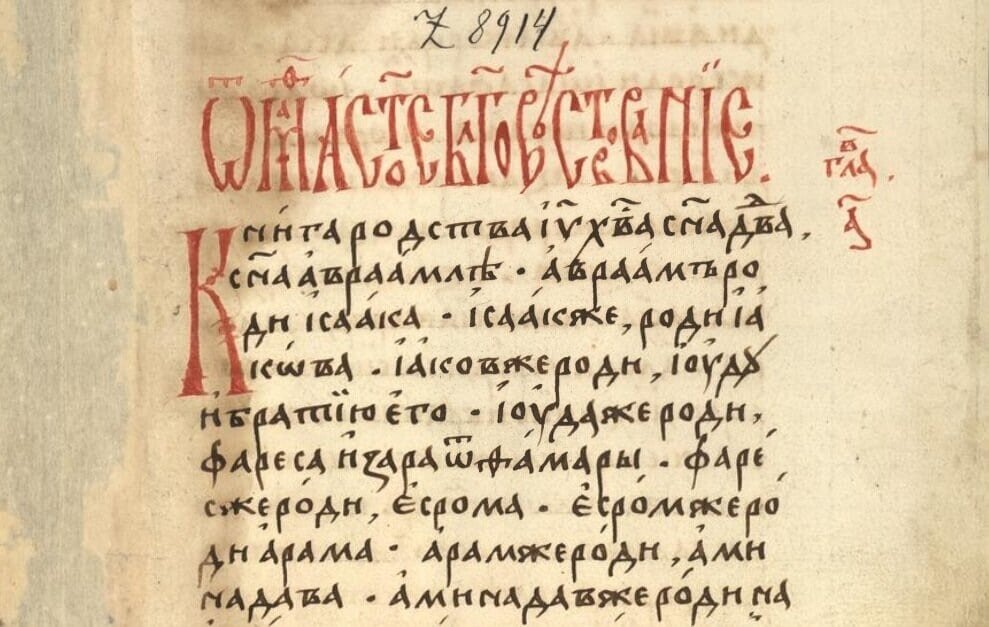 Z 8914
Ѿ маѳⷴ҇еа ст҃ое бл҃говѣствованїе.
в҃ глⷡ҇а.
а҃
Кни́га родства і҆ѵ҃ хв҃а сн҃а дв҃два,
сн҃а а҆враа́млѣ · а҆враа́мъ ро
ди і҆саа́ка · і҆саа́кже, роди і҆а́
кѡва . і҆а́ковжероди, і҆оудꙋ
и҆братїю е҆го · і҆оу́дажероди,
фареса и҆зара ѿѳа́мары . фаре́
сжеро́ди, е҆сро́ма · е҆сро́мжеро́
ди а҆ра́ма · а҆ра́мжеро́ди, а҆ми
нада́ва · а҆минада́вжеро́ди на